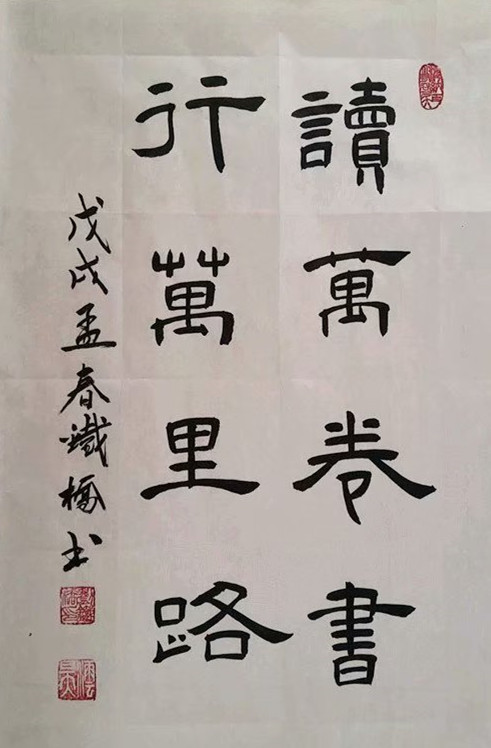 讀萬卷書
行萬里路
戊戌孟春鐵橋书